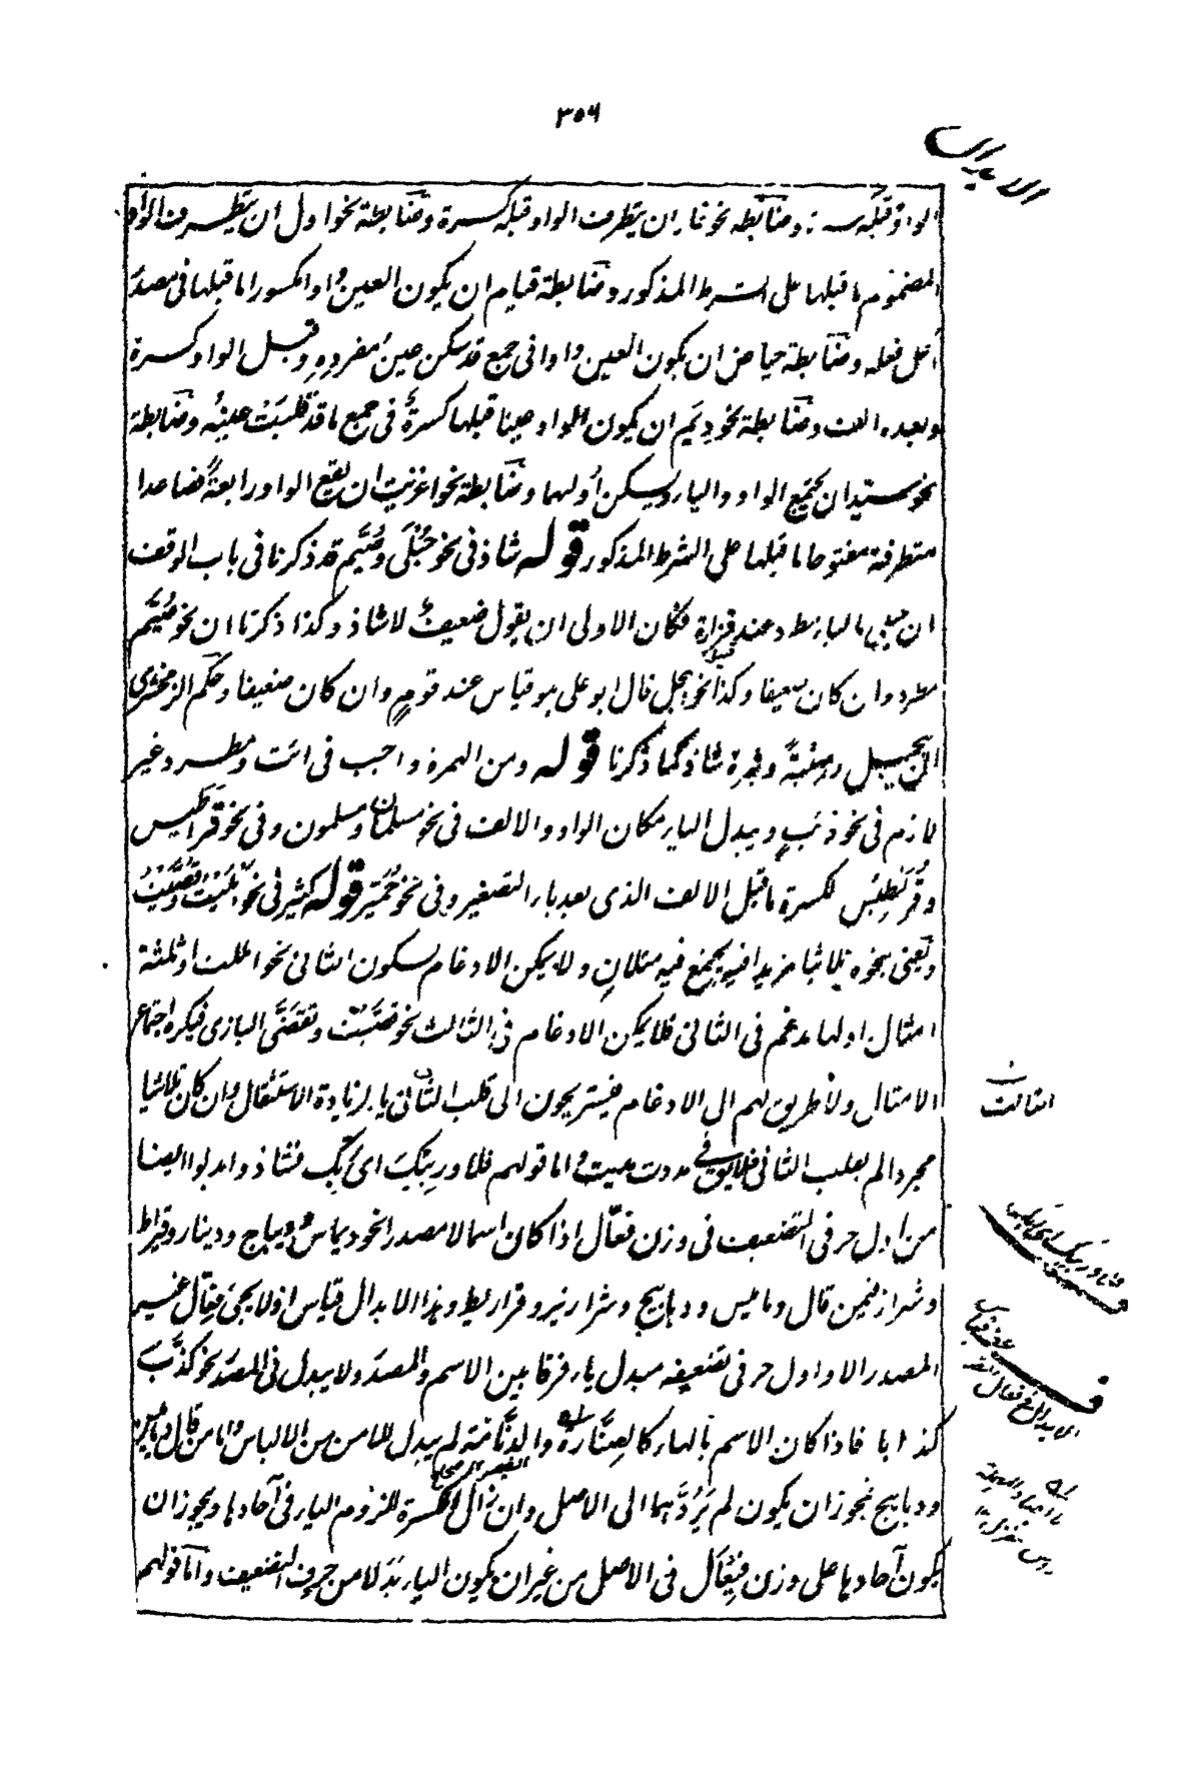 ٣٥٦
الابدال
الواو وقبله كسرة وضابطة نحو غاز ان يتطرف الواو وقبله كسرة وضابطة نحو ادل ان يتطرف الواو
المضموم ما قبلها على الشرط المذكور وضابطة قيام ان يكون العين واوا مكسورا ما قبلها فى مصدر
اعل فعله وضابطة حياض ان يكون العين واوا فى جمع قد سكن عين مفرده وقبل الواو كسرة
وبعده الف وضابطة نحو ديم ان يكون الواو عينا قبلها كسرة فى جمع ما قد قلبت عينه وضابطة
نحو سيد ان يجتمع الواو والياء ويسكن أولهما وضابطة نحو اغزيت ان يقع الواو رابعة فصاعدا
متطرفة مفتوحا ما قبلها على الشرط المذكور قوله شاذ فى نحو حبلى وصيم قد ذكرنا فى باب الوقف
ان حبلى بالياء مطرد عند فزارة فكان الاولى ان يقول ضعيف لا شاذ وكذا ذكرنا ان نحو صيم
مطرد وان كان ضعيفا وكذا نحو ييجل قال ابو على هو قياس عند قوم وان كان ضعيفا وحكم الزمخشرى
وثيرة شاذ كما ذكرنا قوله ومن الهمزة واجب فى ائت ومطرد غير
لازم فى نحو ذئب ويبدل الياء مكان الواو والالف فى نحو مسلمان ومسلمون وفى نحو قراطيس
وقريطيس لكسرة ما قبل الالف الذى بعد ياء التصغير وفى نحو حمير قوله كثير فى نحو امليت وقصيت
ويعنى بنحوه ثلاثيا مزيدا فيه يجتمع فيه مثلان ولا يمكن الادغام لسكون الثانى نحو امللت او ثلثة
امثال اولها مدغم فى الثانى فلا يمكن الادغام فى الثالث نحو قصيت وتقضى البازى فيكره اجتماع
الامثال ولا طريق لهم الى الادغام فيستريحون الى قلب الثانى ياء لزيادة الاستثقال وان كان ثلاثيا
مجردا لم يقلب الثانى فلا يق فى مددت مديت واما قولهم فلا وربيك اى وربك فشاذ وابدلوا ايضا
من اول حرفى التضعيف فى وزن فعال اذا كان اسما لا مصدرا نحو ديماس وديباج ودينار وقيراط
وشيراز فيمن قال دماميس ودبابيج وشراريز وقراريط وهذا الابدال قياس اذ لا يجئ فعال غير
المصدر الا واول حرفى تضعيفه مبدل ياء فرقا بين الاسم والمصدر ولا يبدل فى المصدر نحو كذب
كذابا فاذا كان الاسم بالهاء كالصنارة والدنامة لم يبدل للامن من الالباس واما من قال دياميس
وديابيج فيجوز ان يكون لم يردهما الى الاصل وان زال الكسرة للزوم الياء فى آحادها ويجوز ان
يكون آحادها على وزن فيعال فى الاصل من غير ان يكون الياء بدلا من حرف التضعيف واما قولهم
الثالث